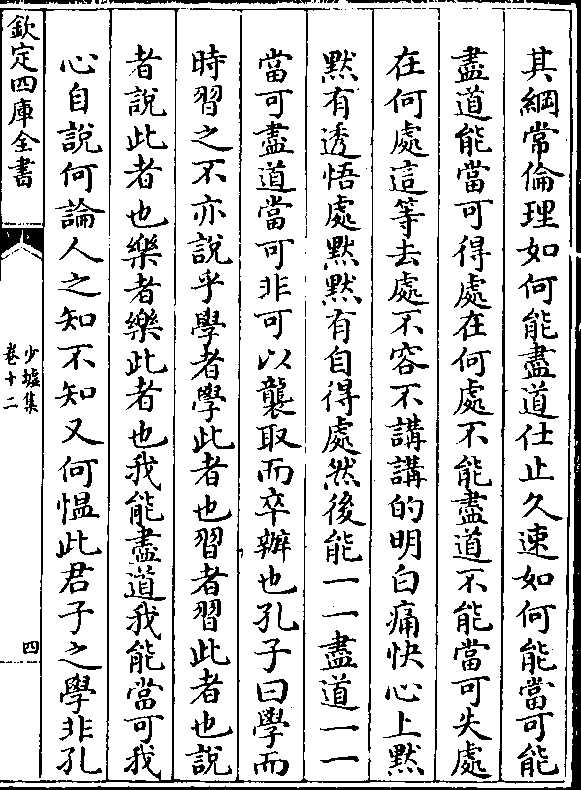 其綱常倫理如何能盡道仕止久速如何能當可能
盡道能當可得處在何處不能盡道不能當可失處
在何處這等去處不容不講講的明白痛快心上默
默有透悟處默默有自得處然後能一一盡道一一
當可盡道當可非可以襲取而卒辦也孔子曰學而
時習之不亦說乎學者學此者也習者習此者也說
者說此者也樂者樂此者也我能盡道我能當可我
心自說何論人之知不知又何慍此君子之學非孔
欽定四庫全書
少墟集
卷十二
四